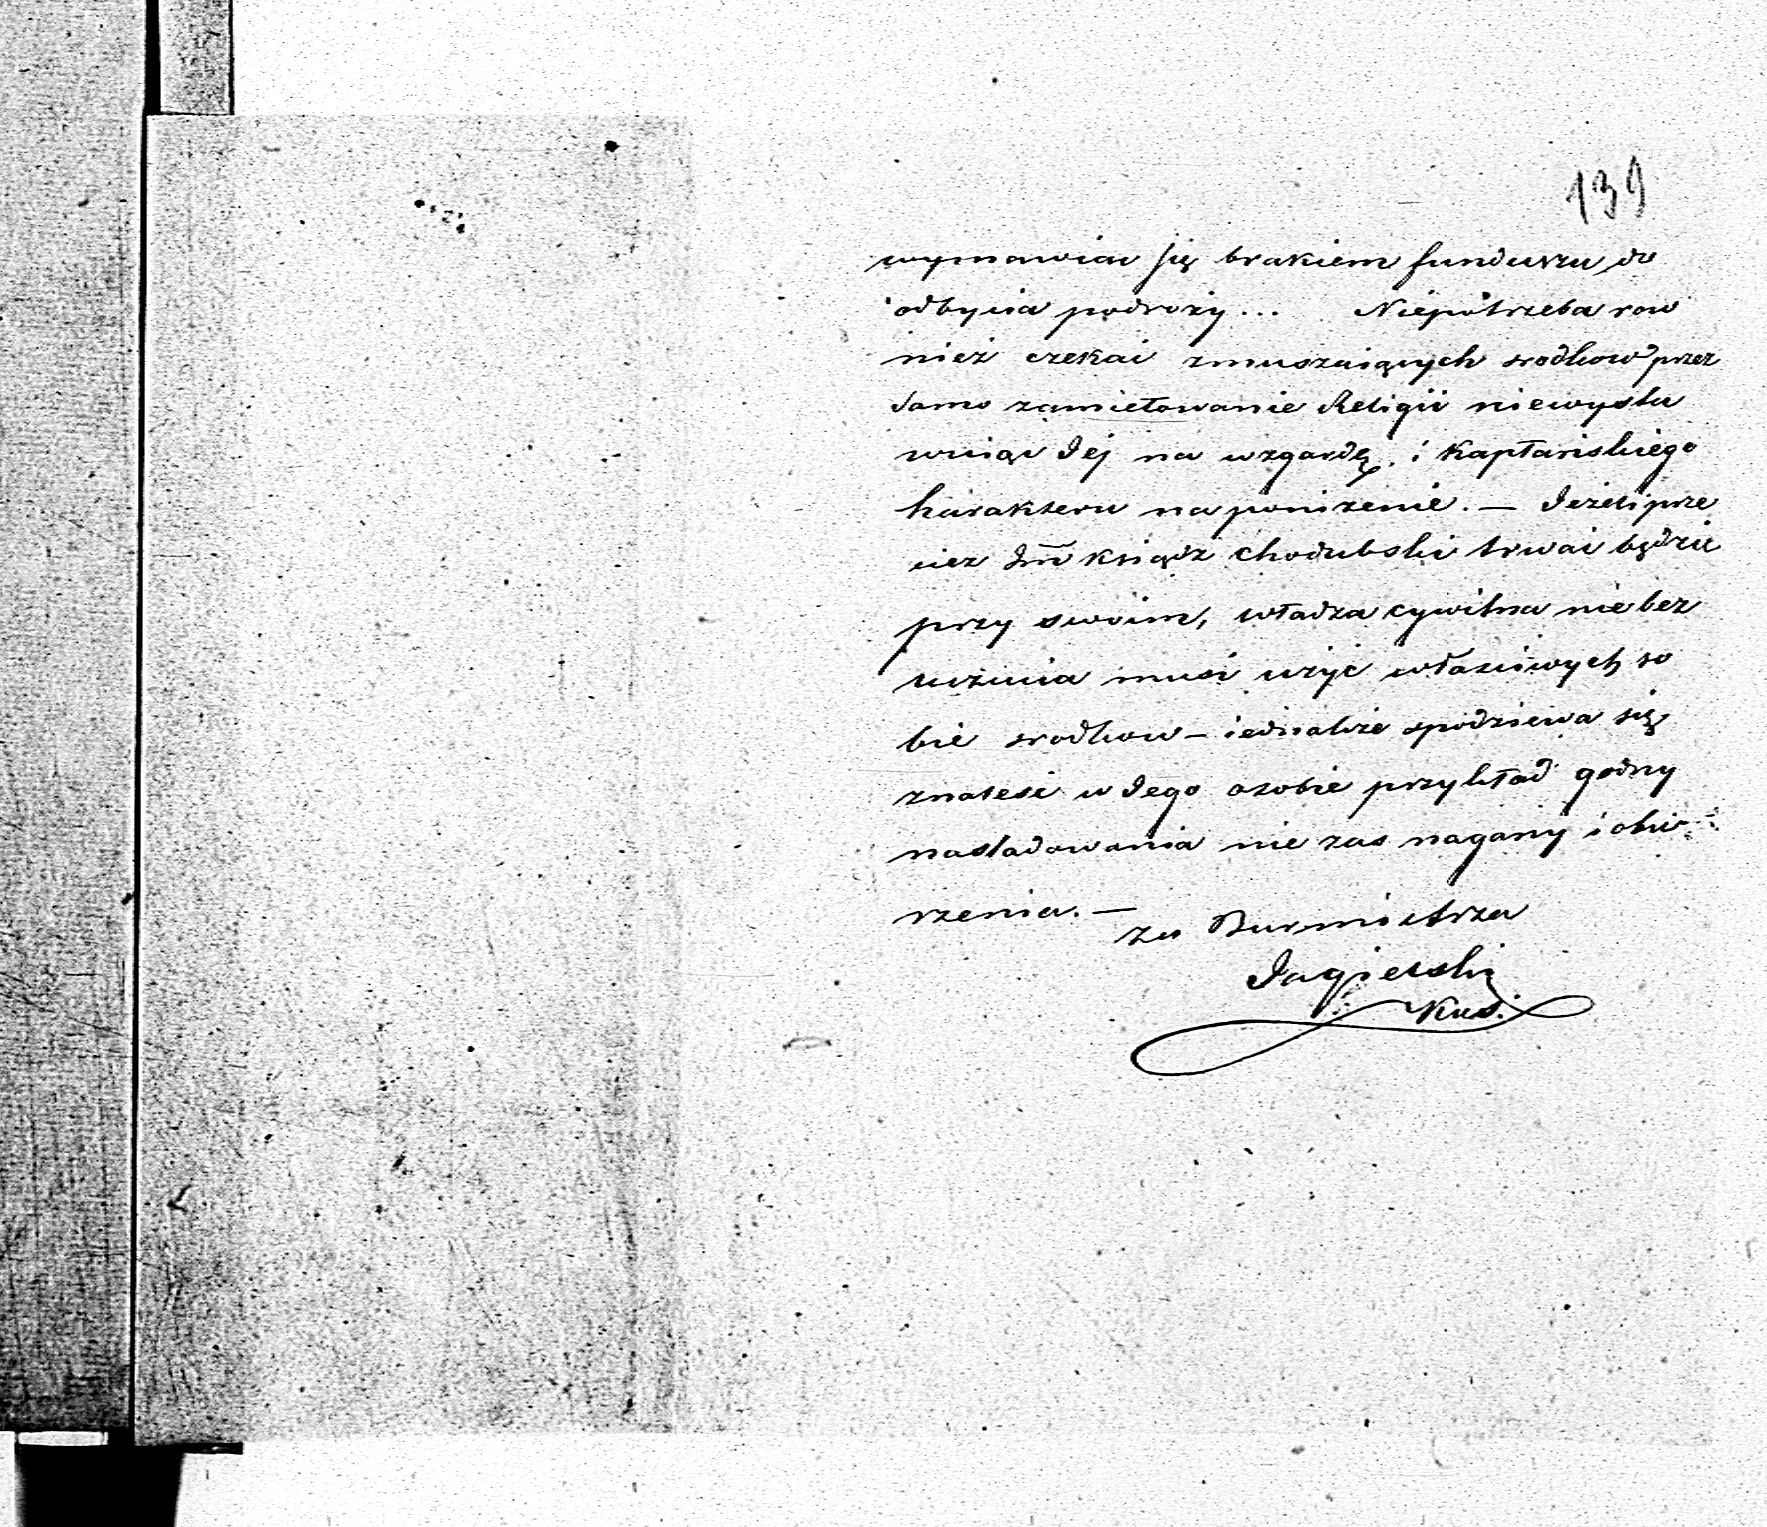 139
wymawiać się brakiem funduszu do
odbycia podroży... Niepotrzeba row
nież czekać zmuszaiących srodkow przez
samo zamiłowanie Religii niewysta
wuiąc Jej na wzgardę i Kapłańskiego
harakteru na poniżenie. — Jeżeli prze
cież Jm̃ Ksiądz Chodubski trwać będzie
przy swoim, władza cywilna nie bez
uczucia musi użyć właściwych so
bie srodkow — iednakże spodziewa się
znaleść w Jego osobie przykład godny
nasladowania nie zas nagany i obu
rzenia. —
Za Burmistrza
Jagielski
Kas.